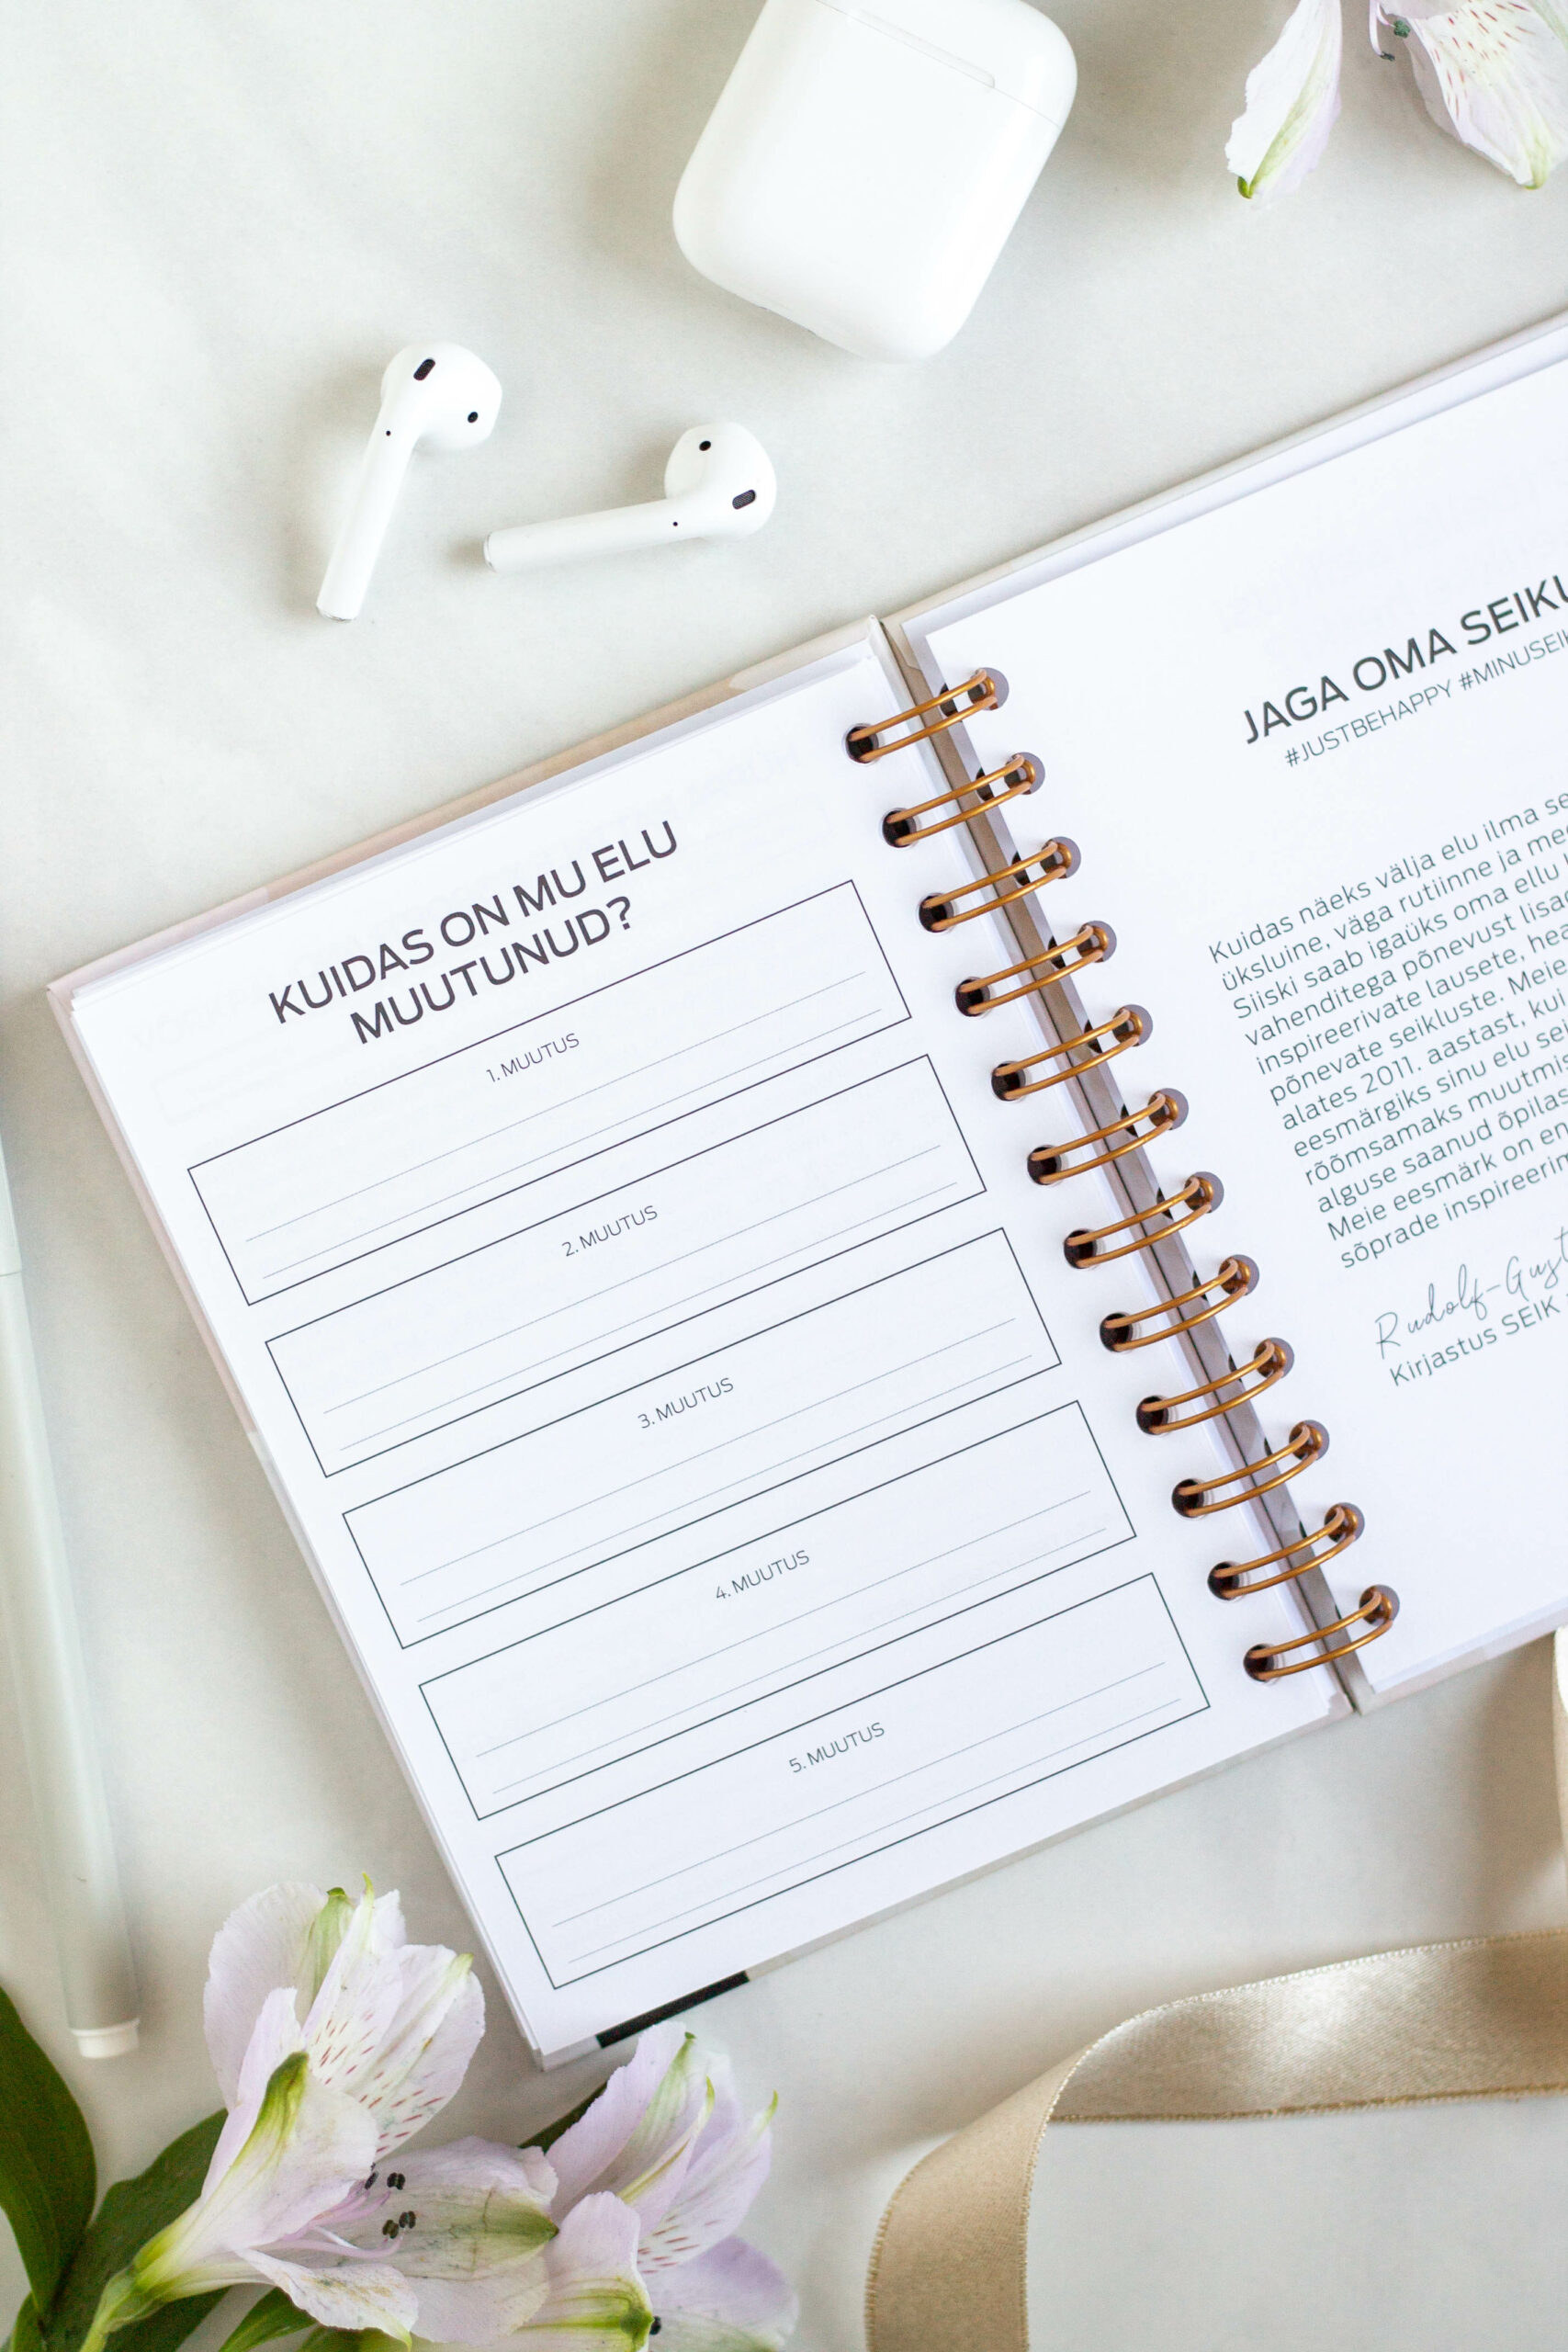 KUIDAS ON MU ELU
MUUTUNUD?
1. MUUTUS
2. MUUTUS
3. MUUTUS
4. MUUTUS
5. MUUTUS
JAGA OMA
#JUSTBEHAPPY
Kuidas näeks välja elu ilma
üksluine, väga rutiinne ja
Siiski saab igaüks oma ellu
vahenditega põnevust
inspireerivate lausete,
põnevate seikluste. Meie
alates 2011. aastast, kui
eesmärgiks sinu elu
rõõmsamaks
alguse saanud
Meie eesmärk on
sõprade
Kirjastus SEIK